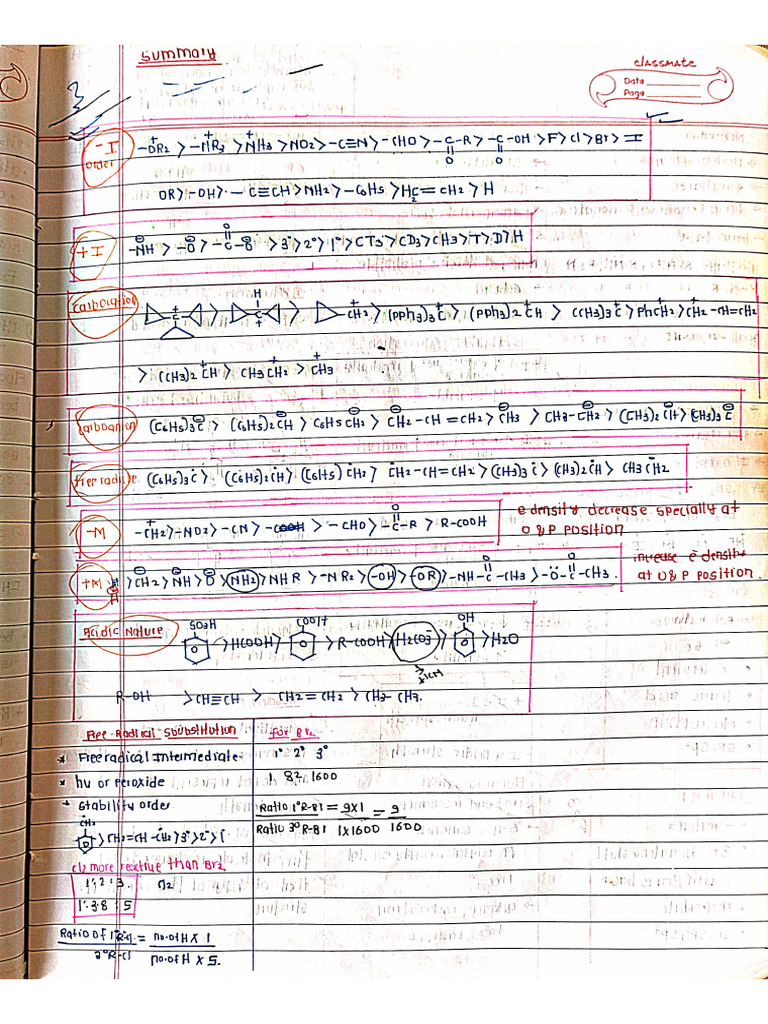 Summary
classmate
Date
Page
-I order
-OR2⁺ > -NR3⁺ > NH3⁺ > NO2 > -C≡N > -CHO > -C(=O)-R > -C(=O)-OH > F > Cl > Br > I
OR > -OH > -C≡CH > NH2 > -C6H5 > HC=CH2 > H
+I
-NH⊖ > -O⊖ > -C(=O)-O⊖ > 3° > 2° > 1° > CT3 > CD3 > CH3 > T > D > H
Carbocation
> > -CH2⁺ > (PPh3)3C⁺ > (PPh3)2CH⁺ > (CH3)3C⁺ > PhCH2⁺ > CH2⁺-CH=CH2
> (CH3)2CH⁺ > CH3CH2⁺ > CH3⁺
Carboanion
(C6H5)3C⊖ > (C6H5)2CH⊖ > C6H5CH2⊖ > CH2⊖-CH=CH2 > CH3⊖ > CH3-CH2⊖ > (CH3)2CH⊖ > (CH3)3C⊖
Free radicle
(C6H5)3C• > (C6H5)2CH• > (C6H5)CH2• > CH2•-CH=CH2 > (CH3)3C• > (CH3)2CH• > CH3CH2•
-M
-CH2⁺ > -NO2 > -CN > > -CHO > -C(=O)-R > R-COOH
e density decrease specially at
O & P position
+M
> CH2⊖ > NH⊖ > O⊖ > NH2 > NHR > -NR2 > -OH > -OR > -NH-C(=O)-CH3 > -O-C(=O)-CH3.
increase e⁻ density
at O & P position
Acidic Nature
SO3H > HCOOH > COOH > R-COOH > H2CO3 > OH > H2O
R-OH > CH≡CH > CH2=CH2 > CH3-CH3.
Free Radical Sbubstitution
* Freeradical Intermediate
* hv or Peroxide
→ Stability order
CH2• > CH2=CH-CH2• > 3° > 2° > 1°
Cl2 more reactive than Br2
1 : 2 : 3
1 : 3.8 : 5
Ratio of 1°R-Cl / 2°R-Cl = no. of H × 1 / no. of H × 5.
For Br2
1° 2° 3°
1 82 1600
Ratio 1°R-Br / Ratio 3°R-Br = 9×1 / 1×1600 = 9 / 1600